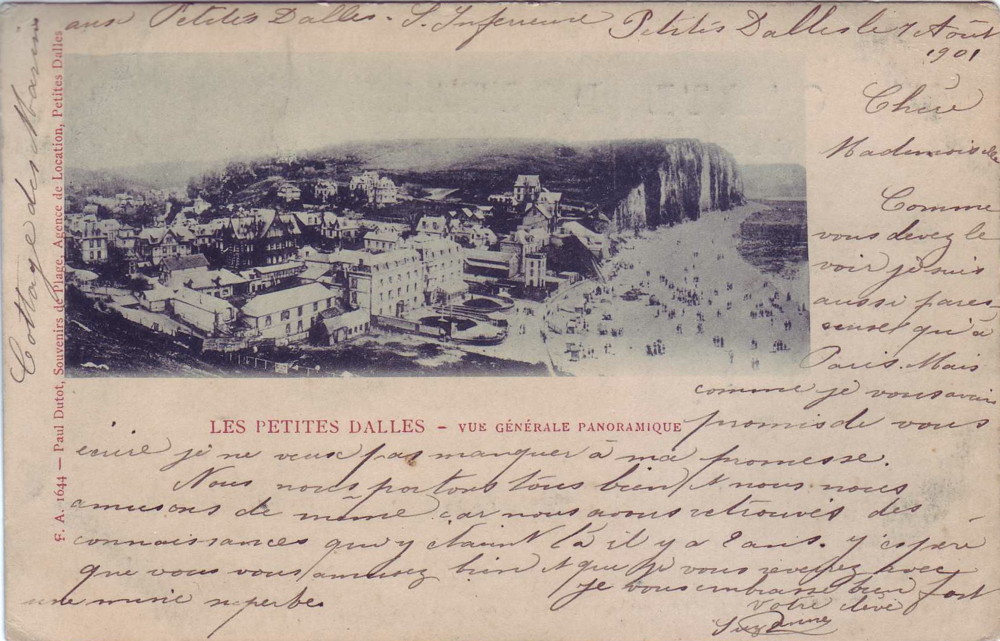 Cottage des Marins
aux Petites Dalles - S. Inferieure
Petites Dalles le 7 Août
1901
Chère
Mademoiselle
Comme
vous devez le
voir je suis
aussi pares
seuse qu'à
Paris. Mais
comme je vous avais
promis de vous
écrire je ne veux pas manquer à ma promesse.
Nous nous portons tous bien et nous nous
amusons de même car nous avons retrouvés des
connaissances qui y étaient là il y a 2 ans. J'espère
que vous vous amusez bien et que je vous reverrez avec
une mine superbe.
je vous embrasse bien fort
Votre élève
Suzanne
LES PETITES DALLES - VUE GÉNÉRALE PANORAMIQUE
F. A. 1644 — Paul Dutot, Souvenirs de Plage, Agence de Location, Petites Dalles